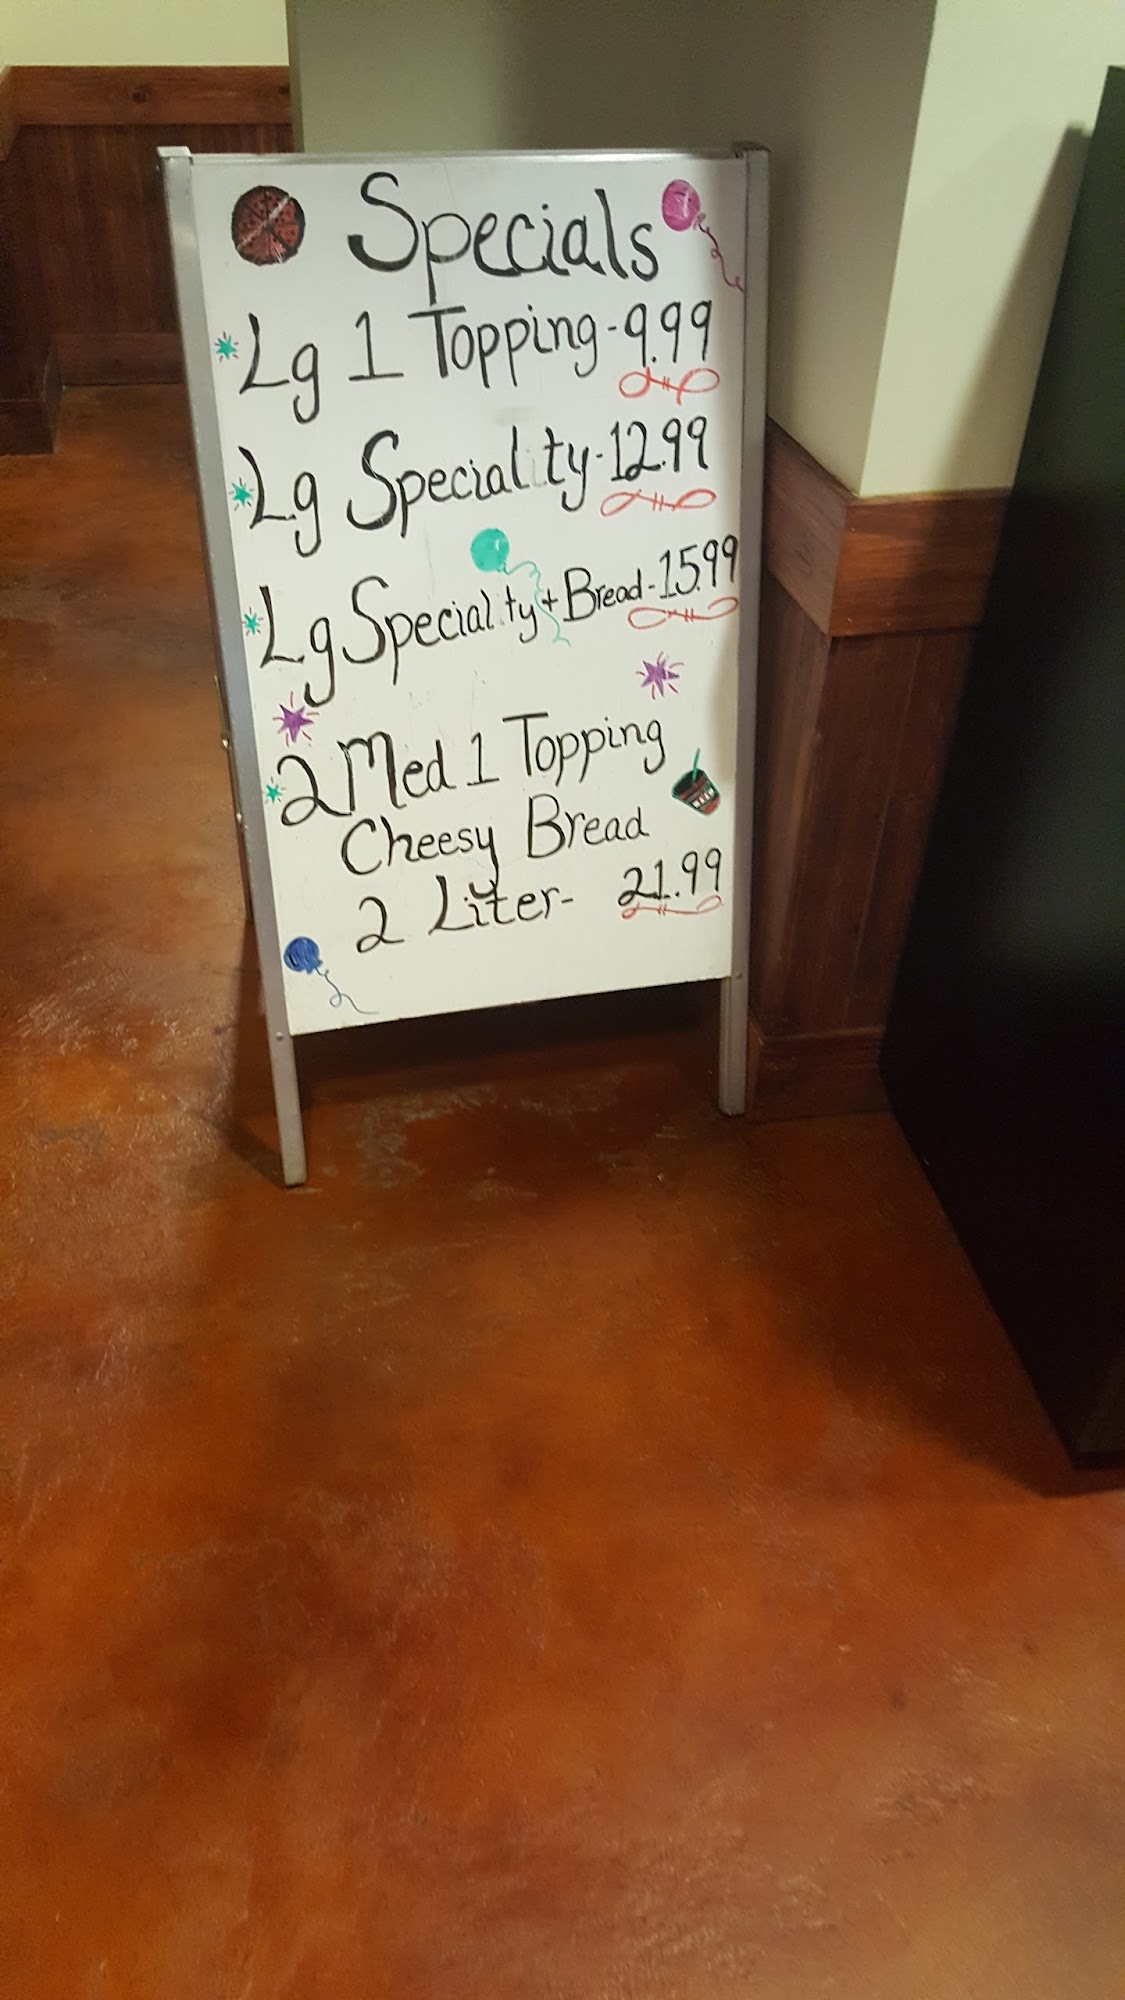 Specials
*Lg 1 Topping-9.99
*Lg Speciality-12.99
*Lg Speciality+Bread-15.99
*2 Med 1 Topping
Cheesy Bread
2 Liter- 21.99